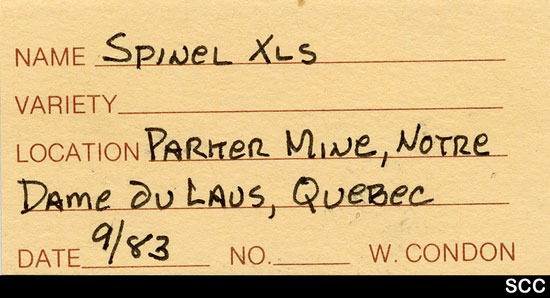 NAME Spinel Xls
VARIETY
LOCATION Parker Mine, Notre
Dame du Laus, Quebec
DATE 9/83 NO. W. CONDON
SCC